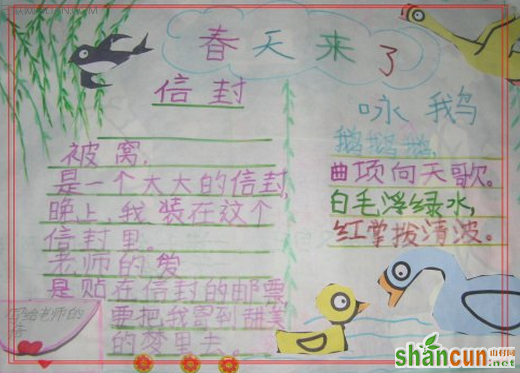 春天来了
信封
被窝,
是一个大大的信封,
晚上,我装在这个
信封里。
老师的爱
是贴在信封的邮票
要把我寄到甜美
的梦里去。
写给老师的
咏鹅
鹅鹅鹅,
曲项向天歌。
白毛浮绿水,
红掌拨清波。
shancun
山村网
.net